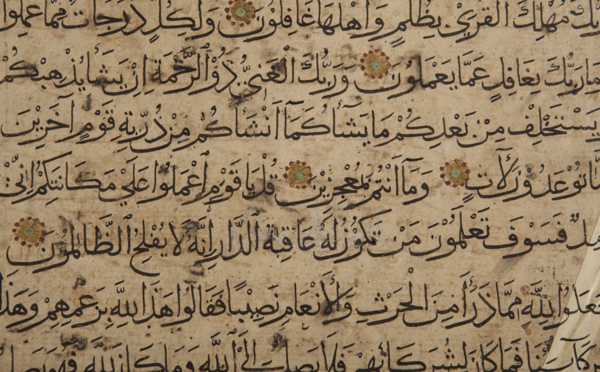 ربك مهلك القرى بظلم وأهلها غافلون ولكل درجات مما عملوا
وما ربك بغافل عما يعملون وربك الغني ذو الرحمة إن يشأ يذهبكم
ويستخلف من بعدكم ما يشاء كما أنشأكم من ذرية قوم آخرين
إنما توعدون لآت وما أنتم بمعجزين قل يا قوم اعملوا على مكانتكم إني
عامل فسوف تعلمون من تكون له عاقبة الدار إنه لا يفلح الظالمون
وجعلوا لله مما ذرأ من الحرث والأنعام نصيبا فقالوا هذا لله بزعمهم وهذا
لشركائنا فما كان لشركائهم فلا يصل إلى الله وما كان لله فهو يصل